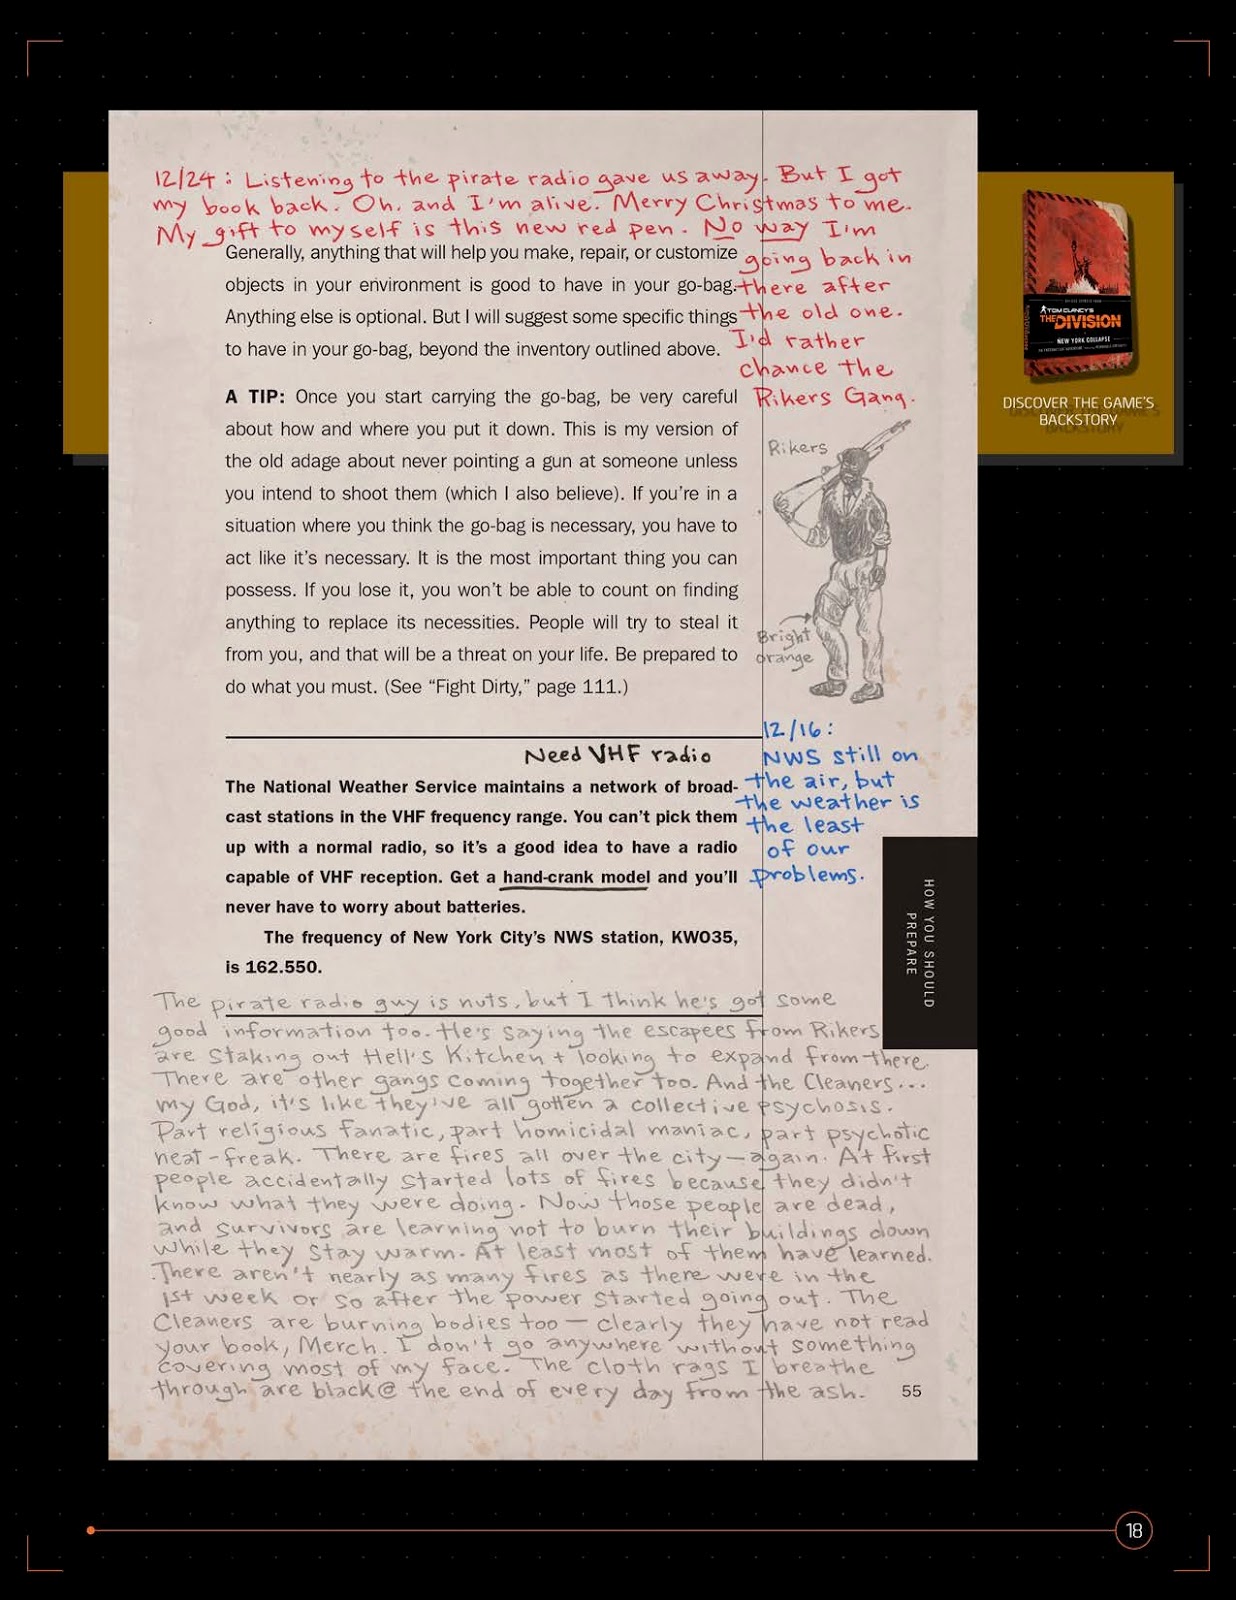 12/24: Listening to the pirate radio gave us away. But I got
my book back. Oh, and I'm alive. Merry Christmas to me.
My gift to myself is this new red pen. No way I'm
going back in
there after
the old one.
I'd rather
chance the
Rikers Gang.
Generally, anything that will help you make, repair, or customize
objects in your environment is good to have in your go-bag.
Anything else is optional. But I will suggest some specific things
to have in your go-bag, beyond the inventory outlined above.
A TIP: Once you start carrying the go-bag, be very careful
about how and where you put it down. This is my version of
the old adage about never pointing a gun at someone unless
you intend to shoot them (which I also believe). If you're in a
situation where you think the go-bag is necessary, you have to
act like it's necessary. It is the most important thing you can
possess. If you lose it, you won't be able to count on finding
anything to replace its necessities. People will try to steal it
from you, and that will be a threat on your life. Be prepared to
do what you must. (See “Fight Dirty,” page 111.)
Rikers
Bright
orange
Need VHF radio
The National Weather Service maintains a network of broad-
cast stations in the VHF frequency range. You can't pick them
up with a normal radio, so it's a good idea to have a radio
capable of VHF reception. Get a hand-crank model and you'll
never have to worry about batteries.
The frequency of New York City's NWS station, KWO35,
is 162.550.
12/16:
NWS still on
the air, but
the weather is
the least
of our
problems.
HOW YOU SHOULD
PREPARE
The pirate radio guy is nuts, but I think he's got some
good information too. He's saying the escapees from Rikers
are staking out Hell's Kitchen + looking to expand from there.
There are other gangs coming together too. And the Cleaners...
my God, it's like they've all gotten a collective psychosis.
Part religious fanatic, part homicidal maniac, part psychotic
neat-freak. There are fires all over the city—again. At first
people accidentally started lots of fires because they didn't
know what they were doing. Now those people are dead,
and survivors are learning not to burn their buildings down
while they stay warm. At least most of them have learned.
There aren't nearly as many fires as there were in the
1st week or so after the power started going out. The
Cleaners are burning bodies too — clearly they have not read
your book, Merch. I don't go anywhere without something
covering most of my face. The cloth rags I breathe
through are black @ the end of every day from the ash.
55
TOM CLANCY'S
THE DIVISION
NEW YORK COLLAPSE
DISCOVER THE GAME'S
BACKSTORY
18